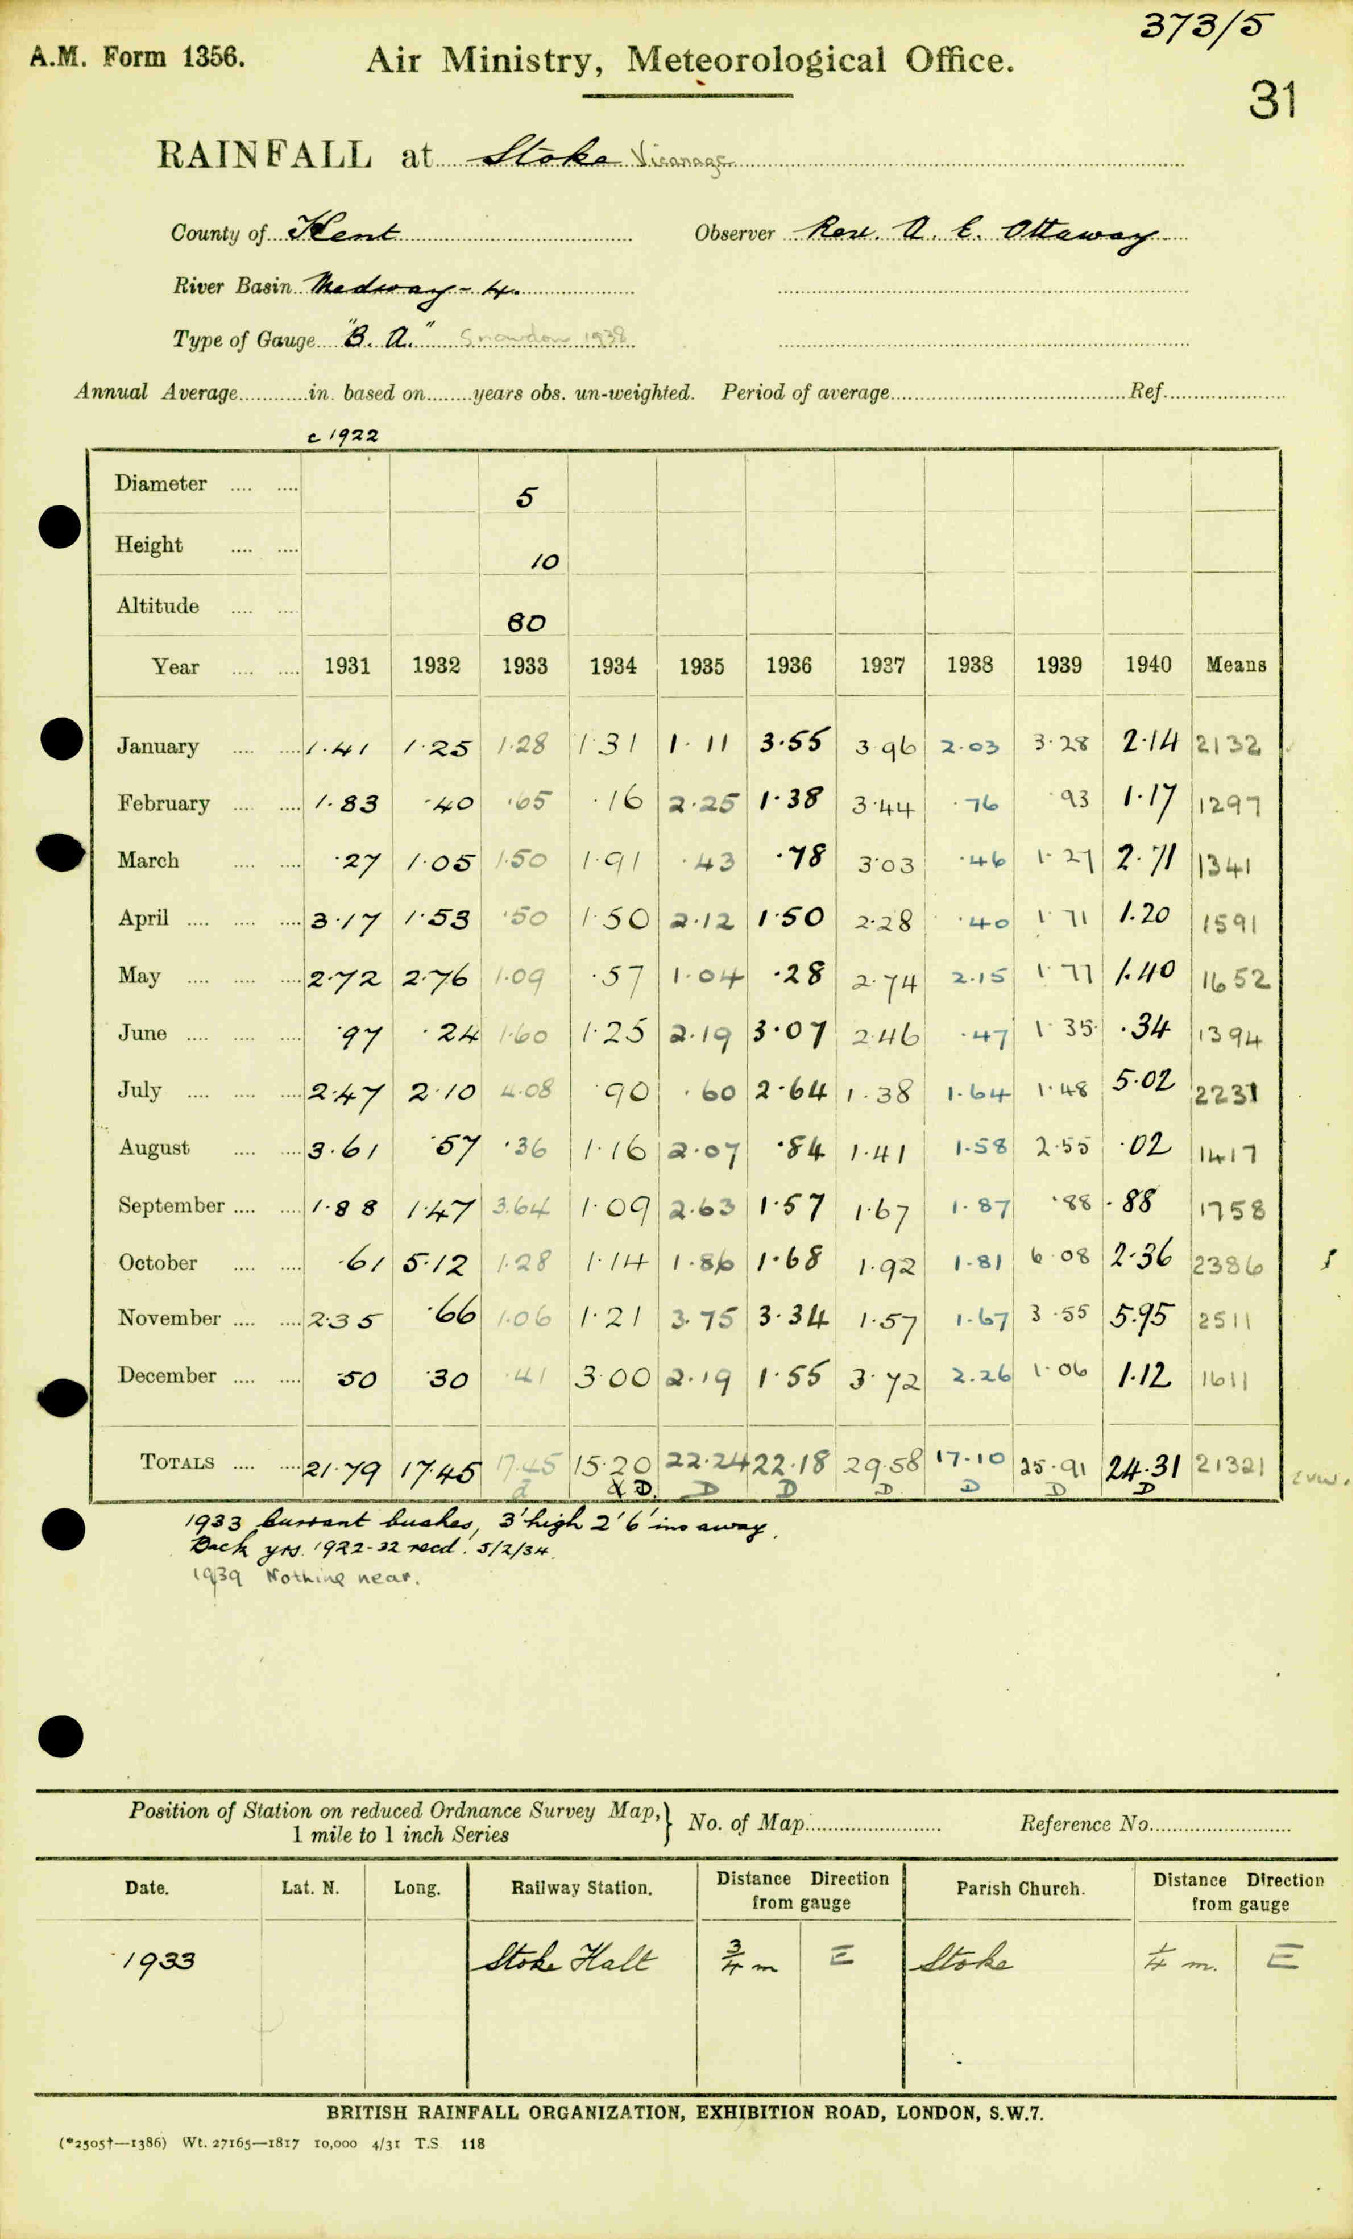 373/5
A.M. Form 1356. Air Ministry, Meteorological Office.
31
RAINFALL at Stoke Vicanage
County of Kent Observer Rev. A. E. Ottaway
River Basin Medway - 4.
Type of Gauge "B. A." Snowdon 1938
Annual Average............in. based on........years obs. un-weighted. Period of average..............Ref..............
c 1922
Diameter .... .... 5
Height .... .... 10
Altitude .... .... 80
Year .... .... 1931 1932 1933 1934 1935 1936 1937 1938 1939 1940 Means
January .... .... 1.41 1.25 1.28 1.31 1.11 3.55 3.96 2.03 3.28 2.14 2132
February .... .... 1.83 .40 .65 .16 2.25 1.38 3.44 .76 .93 1.17 1297
March .... .... .27 1.05 1.50 1.91 .43 .78 3.03 .46 1.27 2.71 1341
April .... .... .... 3.17 1.53 .50 1.50 2.12 1.50 2.28 .40 1.71 1.20 1591
May .... .... .... 2.72 2.76 1.09 .57 1.04 .28 2.74 2.15 1.77 1.40 1652
June .... .... .... .97 .24 1.60 1.25 2.19 3.07 2.46 .47 1.35 .34 1394
July .... .... .... 2.47 2.10 4.08 .90 .60 2.64 1.38 1.64 1.48 5.02 2231
August .... .... 3.61 .57 .36 1.16 2.07 .84 1.41 1.58 2.55 .02 1417
September .... .... 1.88 1.47 3.64 1.09 2.63 1.57 1.67 1.87 .88 .88 1758
October .... .... .61 5.12 1.28 1.14 1.86 1.68 1.92 1.81 6.08 2.36 2386
November .... .... 2.35 .66 1.06 1.21 3.75 3.34 1.57 1.67 3.55 5.95 2511
December .... .... .50 .30 .41 3.00 2.19 1.55 3.72 2.26 1.06 1.12 1611
TOTALS .... .... 21.79 17.45 17.45 15.20 22.24 22.18 29.58 17.10 25.91 24.31 21321
D. D D D D D D
1933 currant bushes, 3' high 2' 6" ins away.
Back yrs. 1922-32 recd. 5/2/34.
1939 Nothing near.
Position of Station on reduced Ordnance Survey Map,} No. of Map.............. Reference No..............
1 mile to 1 inch Series
Date. Lat. N. Long. Railway Station. Distance Direction from gauge Parish Church. Distance Direction from gauge
1933 Stoke Halt 3/4 m E Stoke 1/4 m. E
BRITISH RAINFALL ORGANIZATION, EXHIBITION ROAD, LONDON, S.W.7.
(*2505†—1386) Wt. 27165—1817 10,000 4/31 T.S. 118